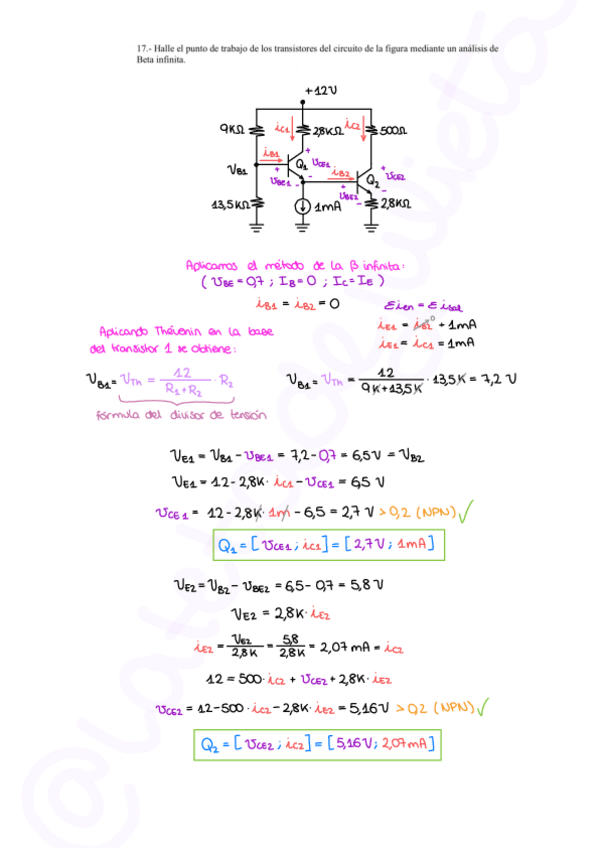 17.- Halle el punto de trabajo de los transistores del circuito de la figura mediante un análisis de
Beta infinita.
+12V
9KΩ
iC1
2,8KΩ
iC2
500Ω
iB1
VB1
+
VBE1
-
Q1
+
VCE1
-
iB2
+
VBE2
-
Q2
+
VCE2
-
13,5KΩ
1mA
2,8KΩ
Aplicamos el método de la β infinita:
( VBE = 0,7 ; IB = 0 ; IC = IE )
iB1 = iB2 = 0
Eien = Eisal
iE1 = iB2 0 + 1mA
iE1 = iC1 = 1mA
Aplicando Thévenin en la base
del transistor 1 se obtiene:
VB1 = VTh = 12 / R1 + R2 · R2
fórmula del divisor de tensión
VB1 = VTh = 12 / 9K+13,5K · 13,5K = 7,2 V
VE1 = VB1 - VBE1 = 7,2 - 0,7 = 6,5V = VB2
VE1 = 12 - 2,8K · iC1 - VCE1 = 6,5 V
VCE1 = 12 - 2,8K · 1m - 6,5 = 2,7 V > 0,2 (NPN) ✓
Q1 = [ VCE1 ; iC1 ] = [ 2,7V ; 1mA ]
VE2 = VB2 - VBE2 = 6,5 - 0,7 = 5,8 V
VE2 = 2,8K · iE2
iE2 = VE2 / 2,8K = 5,8 / 2,8K = 2,07 mA = iC2
12 = 500 · iC2 + VCE2 + 2,8K · iE2
VCE2 = 12 - 500 · iC2 - 2,8K · iE2 = 5,16V > 0,2 (NPN) ✓
Q2 = [ VCE2 ; iC2 ] = [ 5,16V ; 2,07mA ]